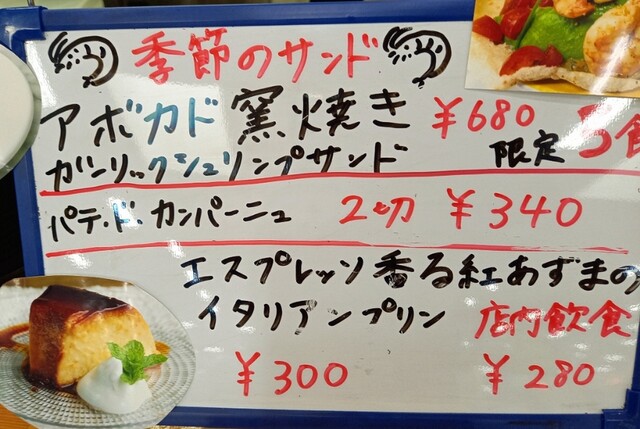 季節のサンド
アボカド窯焼き ¥680
ガーリックシュリンプサンド 限定5食
パテ・ド・カンパーニュ 2切 ¥340
エスプレッソ香る紅あずまの
イタリアンプリン 店内飲食
¥300 ¥280